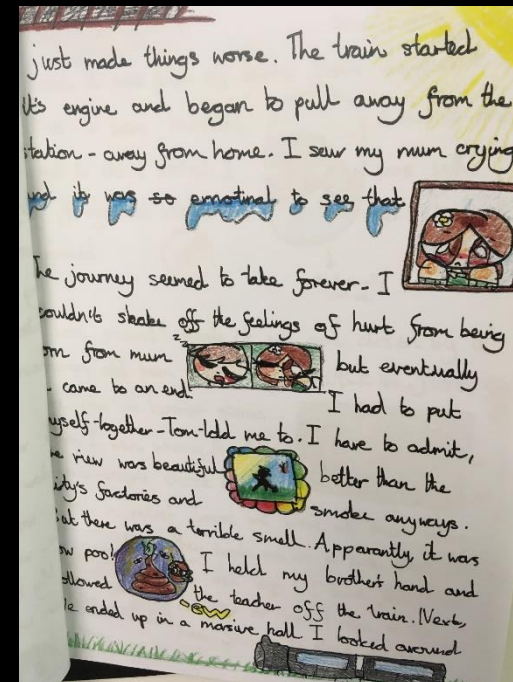 just made things worse. The train started
it's engine and began to pull away from the
station - away from home. I saw my mum crying
and it was so emotinal to see that
The journey seemed to take forever - I
couldn't shake off the feelings of hurt from being
from mum but eventually
came to an end. I had to put
myself together - Tom told me to. I have to admit,
the view was beautiful better than the
city's factories and smoke anyways.
But there was a terrible smell. Apparantly, it was
cow poo! I held my brother's hand and
followed the teacher off the train. Next,
ew
We ended up in a massive hall. I looked around